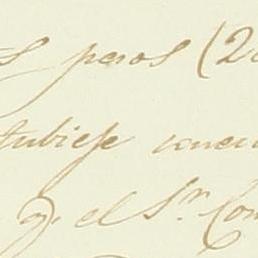 s pesos (20
tubiese conci
q. el Sr. Com